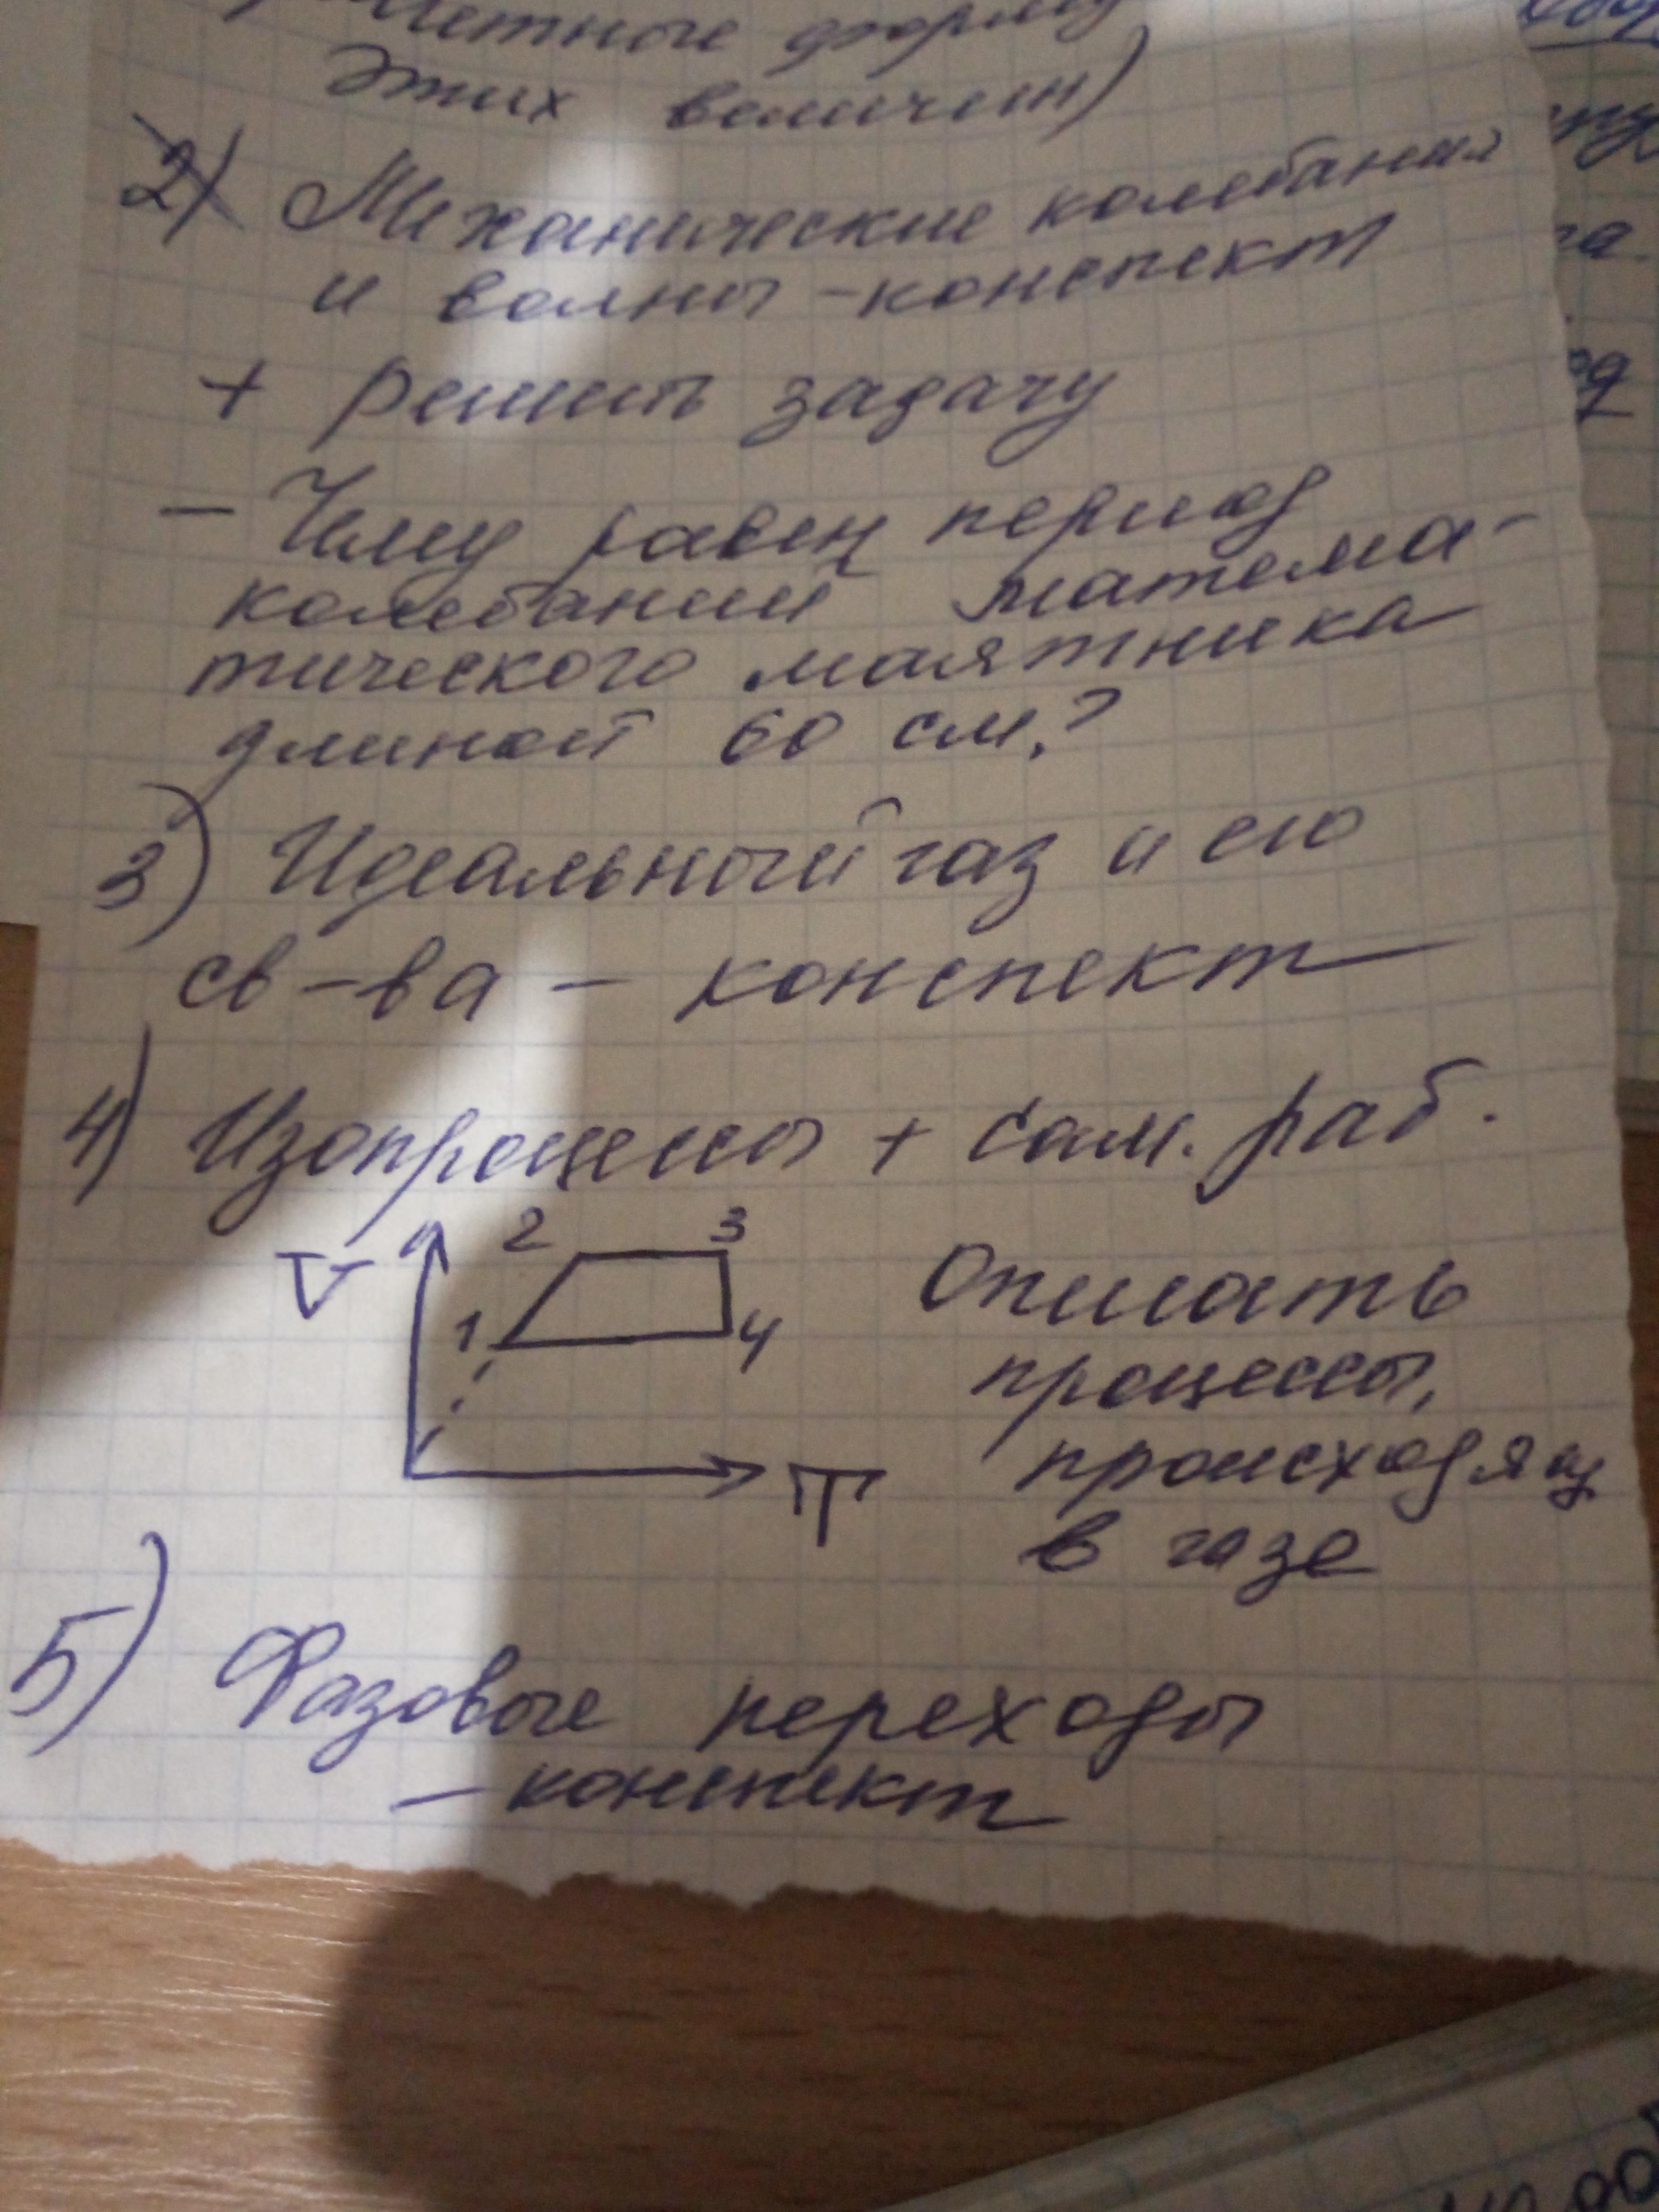 этих величин)
2) Механические колебания
и волны - конспект
+ решить задачу
- Чему равен период
колебаний матема-
тического маятника
длиной 60 см.?
3) Идеальный газ и его
св-ва - конспект
4) Изопроцессы + сам. раб.
V 2 3
1 4
T
Описать
процессы,
происходящ
в газе
5) Фазовые переходы
- конспект